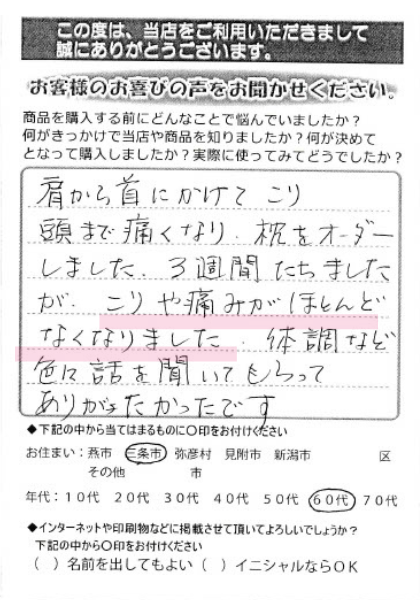 この度は、当店をご利用いただきまして
誠にありがとうございます。
お客様のお喜びの声をお聞かせください。
商品を購入する前にどんなことで悩んでいましたか？
何がきっかけで当店や商品を知りましたか？何が決めて
となって購入しましたか？実際に使ってみてどうでしたか？
肩から首にかけて こり
頭まで痛くなり、枕をオーダー
しました。3週間たちました
が、こりや痛みがほとんど
なくなりました。体調など
色々話を聞いてもらって
ありがたかったです
◆下記の中から当てはまるものに〇印をお付けください
お住まい：燕市 三条市 弥彦村 見附市 新潟市 区
その他 市
年代：10代 20代 30代 40代 50代 60代 70代
◆インターネットや印刷物などに掲載させて頂いてよろしいでしょうか？
下記の中から〇印をお付けください
（ ）名前を出してもよい （ ）イニシャルならOK